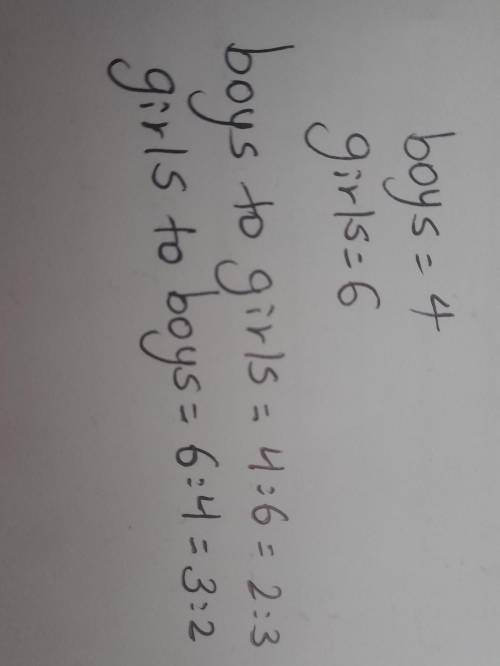 boys = 4
girls = 6
boys to girls = 4:6 = 2:3
girls to boys = 6:4 = 3:2